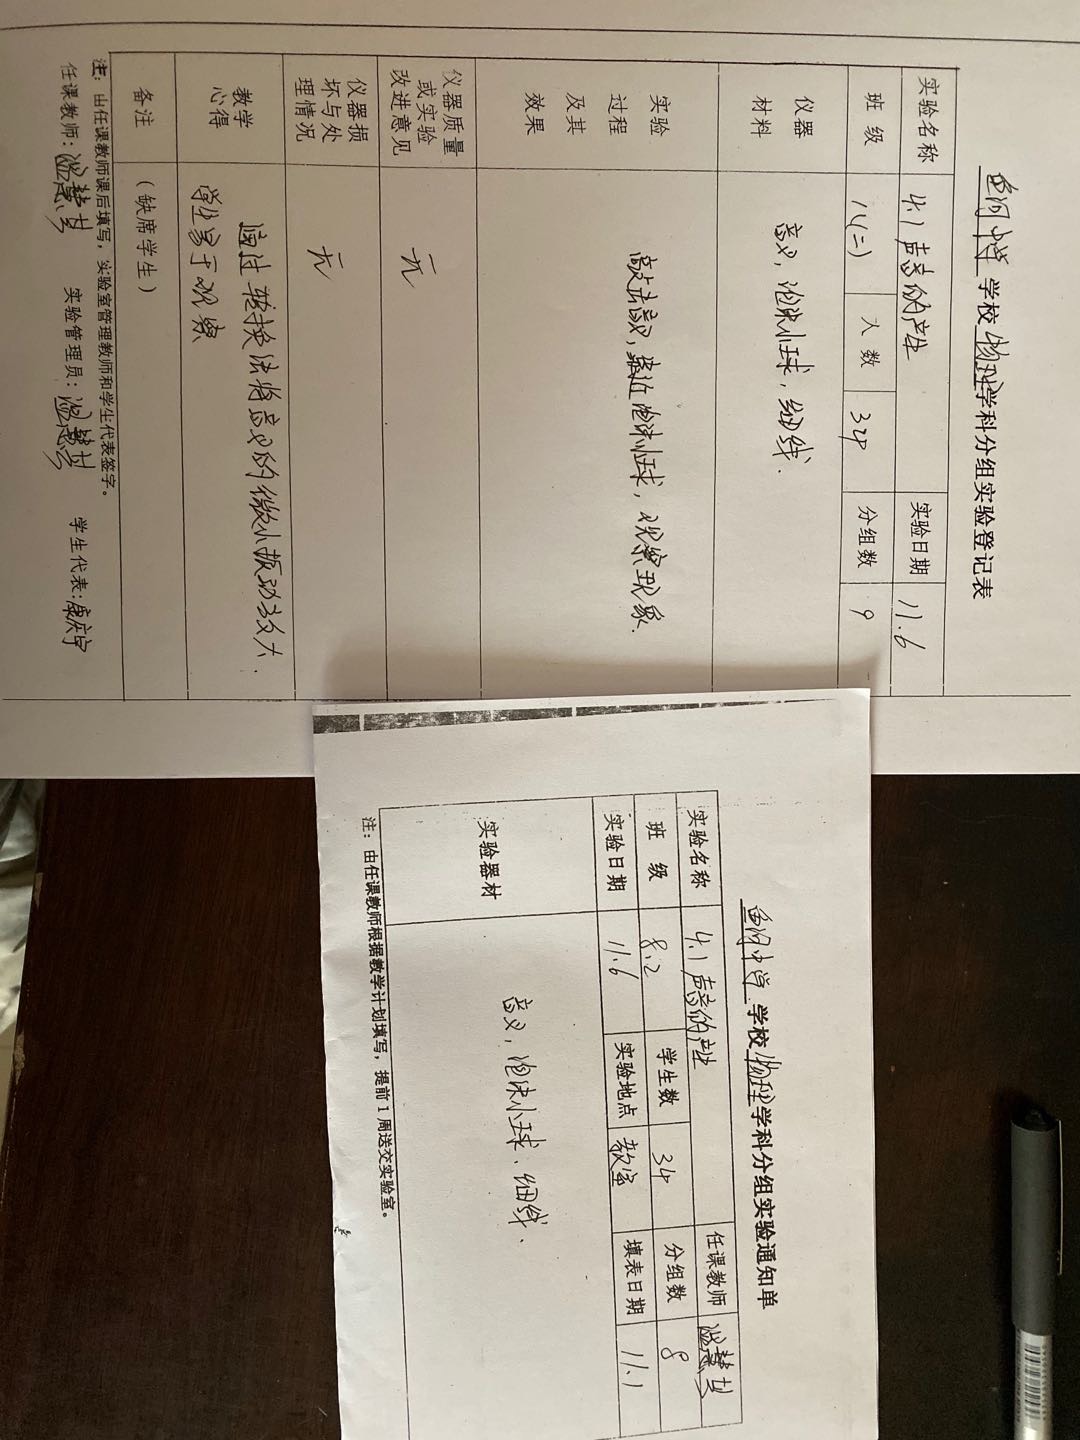 鱼河中学学校物理学科分组实验登记表
实验名称 4.1声音的产生 实验日期 11.6
班 级 八(二) 人 数 34 分组数 9
仪器材料 音叉,泡沫小球,细线.
实验过程及其效果 敲击音叉,靠近泡沫小球,观察现象.
仪器质量或实验改进意见 无
仪器损坏与处理情况 无
教学心得 通过转换法将音叉的微小振动放大.
学生易于观察
备注 (缺席学生)
注:由任课教师课后填写,实验室管理教师和学生代表签字。
任课教师: 实验管理员: 学生代表:
鱼河中学学校物理学科分组实验通知单
实验名称 4.1声音的产生 任课教师
班 级 8.2 学生数 34 分组数 8
实验日期 11.6 实验地点 教室 填表日期 11.1
实验器材 音叉,泡沫小球、细线、
注:由任课教师根据教学计划填写,提前1周送交实验室。